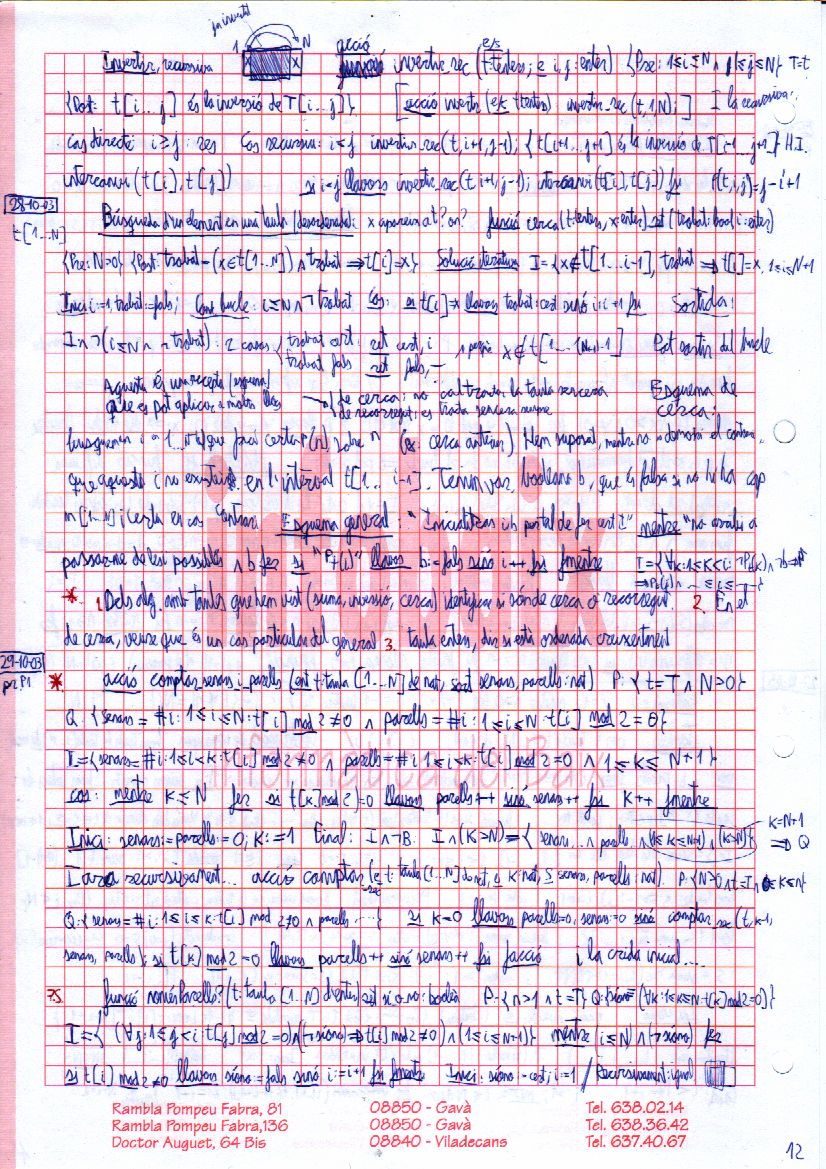 ja invertit
1 N
x x
Invertir, recursiva acció invertir_rec (e/s t:tenters; e i, j: enter) {Pre: 1≤i≤N ∧ 1≤j≤N} T=t
{Post: t[i...j] és la inversió de T[i...j]} [acció invertir (e/s t:tenters) invertir_rec (t,1,N);] I la recursiva:
Cas directe: i≥j: res Cas recursiu: i<j invertir_rec(t,i+1,j-1); {t[i+1...j-1] és la inversió de T[i+1...j-1]} H.I.
intercanvi (t[i],t[j]) si i<j llavors invertir_rec(t,i+1,j-1); intercanvi(t[i],t[j]) fsi f(t,i,j)=j-i+1
28-10-03
t[1...N]
Búsqueda d'un element en una taula (desordenada): x apareix a t? on? funció cerca (t:tenters, x:enter) ret (trobat:bool, i:enter)
{Pre: N>0} {Post: trobat=(x∈t[1...N]) ∧ trobat ⇒ t[i]=x} Solució iterativa I={x∉t[1...i-1], trobat ⇒ t[i]=x, 1≤i≤N+1
Inici i:=1, trobat:=fals; Cond bucle: i≤N ∧ ¬trobat Cos: si t[i]=x llavors trobat:=cert sinó i:=i+1 fsi Sortida:
I ∧ ¬(i≤N ∧ ¬trobat): 2 casos trobat cert: ret cert, i
trobat fals ret fals, - x∉t[1...(N+1)-1] Pot sortir del bucle
Aquesta és una recepta (esquema)
que es pot aplicar a molts llocs
de cerca: no cal tractar la taula sencera
de recorregut: es tracta sencera sempre
Esquema de
cerca:
busquem i ∈ 1...N tal que faci certa P(n), sobre n (ex: cerca anterior) Hem suposat, mentre no es demostri el contrari,
que aquesta i no existeix en l'interval t[1...i-1]. Tenim var. booleana b, que és falsa si no hi ha cap
n [1...N] i certa en cas contrari Esquema general: "Inicialitzar i b per tal de fer cert I" mentre "no acabi a
passar-ne de les possibles ∧ b fer si "P(i)" llavors b:=fals sinó i++ fsi fmentre I={∀k:1≤k<i: ¬P(k) ∧
* 1. Dels alg. amb taules que hem vist (suma, inversió, cerca) identificar si són de cerca o recorregut. 2. En el
de cerca, veure que és un cas particular del general 3. taula enters, dir si està ordenada creixentment
29-10-03
pr.P1
* acció comptar_senars_i_parells (ent t:taula [1...N] de nat, sort senars, parells: nat) P: {t=T ∧ N>0}
Q: {senars = #i: 1≤i≤N: t[i] mod 2≠0 ∧ parells = #i: 1≤i≤N: t[i] mod 2=0}
I={senars=#i:1≤i<k:t[i] mod 2≠0 ∧ parells=#i:1≤i<k:t[i] mod 2=0 ∧ 1≤k≤N+1}
cos: mentre k≤N fer si t[k] mod 2=0 llavors parells++ sinó senars++ fsi k++ fmentre
Inici: senars:=parells:=0; k:=1 Final: I∧¬B. I∧(k>N)={senars... ∧ parells... ∧ (1≤k≤N+1) ∧ (k>N)} k=N+1 ⇒ Q
I ara recursivament... acció comptar_rec (e t: taula [1...N] de nat, e k: nat, s senars, parells: nat) P: {N>0 ∧ t=T ∧ 0≤k≤N}
Q: {senars=#i:1≤i≤k:t[i] mod 2≠0 ∧ parells...} si k=0 llavors parells:=0, senars:=0 sinó comptar_rec (t,k-1,
senars, parells); si t[k] mod 2=0 llavors parells++ sinó senars++ fsi facció i la crida inicial...
75. funció només Parells? (t: taula [1...N] d'enters) ret si o no: booleà P: {n>1 ∧ t=T} Q: {siono=(∀k:1≤k≤N:t[k] mod 2=0)}
I={(∀j:1≤j<i:t[j] mod 2=0) ∧ (¬siono ⇒ t[i] mod 2≠0) ∧ (1≤i≤N+1)} mentre (i≤N) ∧ (siono) fer
si t[i] mod 2≠0 llavors siono:=fals sinó i:=i+1 fsi fmentre Inici: siono:=cert; i:=1 / Recursivament: igual
infobaix
Informàtica del Baix
Rambla Pompeu Fabra, 81 08850 - Gavà Tel. 638.02.14
Rambla Pompeu Fabra,136 08850 - Gavà Tel. 638.36.42
Doctor Auguet, 64 Bis 08840 - Viladecans Tel. 637.40.67
12